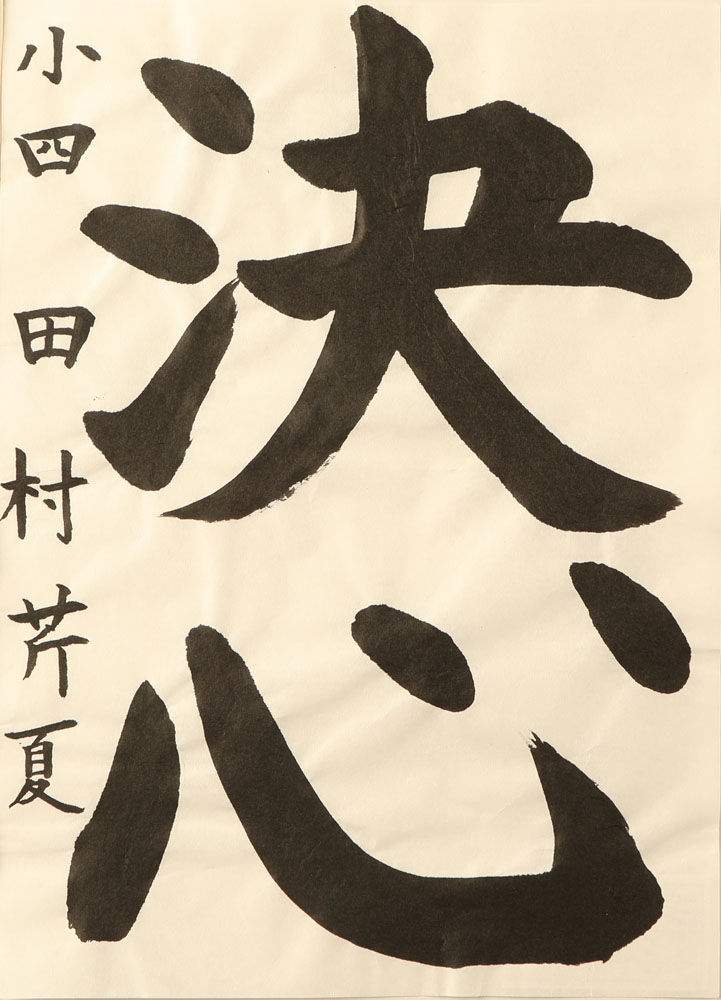 決心
小四 田村芹夏